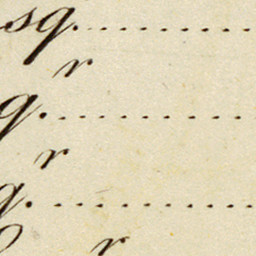 sq..............
r
q..............
r
q..............
r